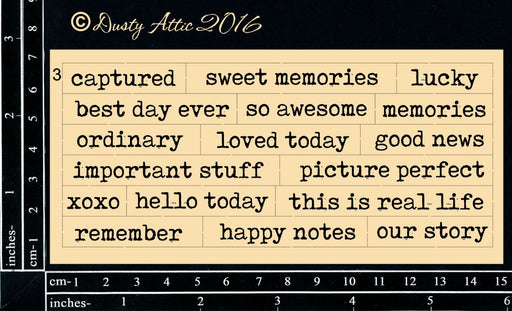 ©Dusty Attic 2016
3 captured sweet memories lucky
best day ever so awesome memories
ordinary loved today good news
important stuff picture perfect
xoxo hello today this is real life
remember happy notes our story
cm-1 2 3 4 5 6 7 8
inches- 1 2 3
cm-1 2 3 4 5 6 7 8 9 10 11 12 13 14 15
inches- 1 2 3 4 5 6